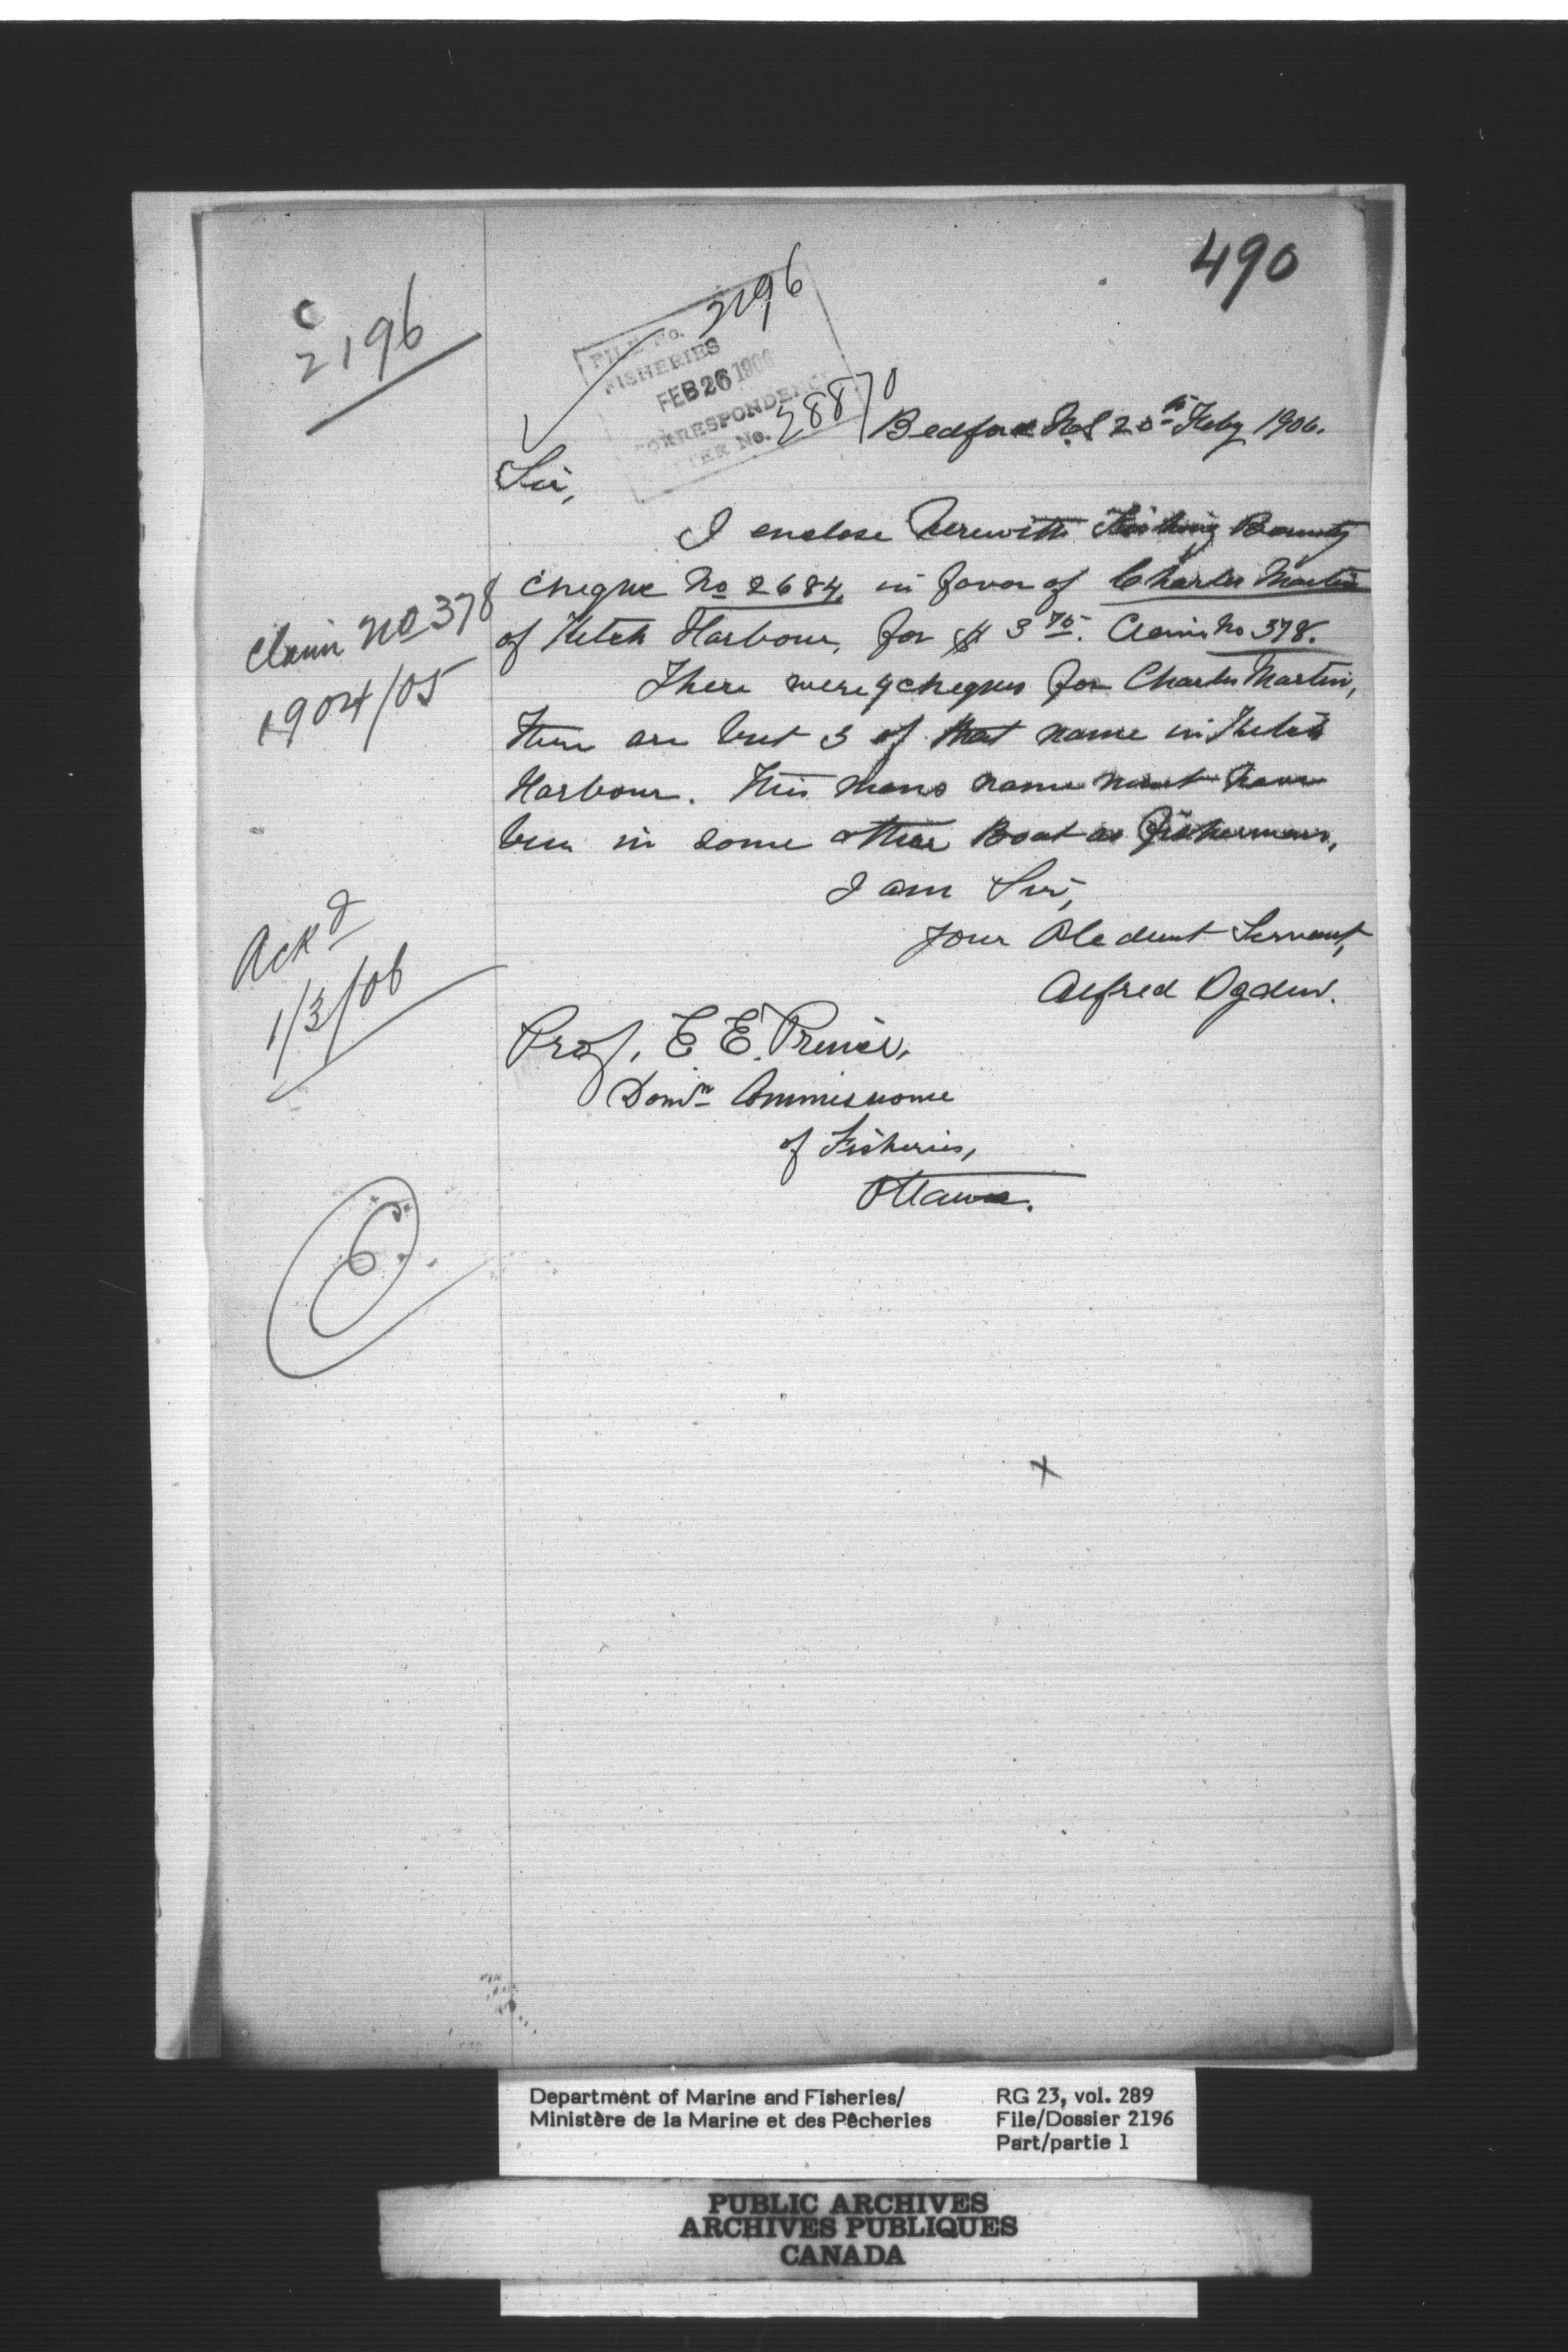 490
C
2196
FILE No. 2196
FISHERIES
FEB 26 1906
CORRESPONDENCE
LETTER No. 28870
Bedford N.S 20th Feby 1906.
Sir,
I enclose herewith Fishing Bounty
cheque No 2684, in favor of Charles Martin
of Ketch Harbour, for $3 75. Claim No 378.
Claim No 378
1904/05
There were 4 cheques for Charles Martin,
there are but 3 of that name in Ketch
Harbour. This mans name must have
been in some other Boat as fisherman.
I am Sir,
Your Obedient Servant,
Alfred Ogden.
Ack d
1/3/06
Prof. E. E. Prince,
Domn Commissioner
of Fisheries,
Ottawa.
x
Department of Marine and Fisheries/
Ministère de la Marine et des Pêcheries
RG 23, vol. 289
File/Dossier 2196
Part/partie 1
PUBLIC ARCHIVES
ARCHIVES PUBLIQUES
CANADA